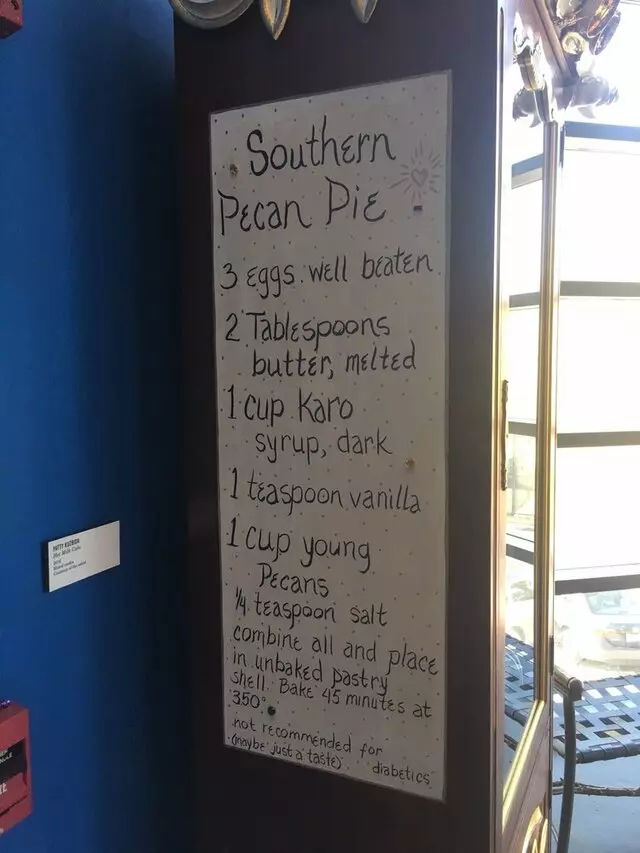 Southern
Pecan Pie
3 eggs well beaten
2 Tablespoons
butter, melted
1 cup Karo
syrup, dark
1 teaspoon vanilla
1 cup young
Pecans
¼ teaspoon salt
combine all and place
in unbaked pastry
shell. Bake 45 minutes at
350°
not recommended for
(maybe just a taste) diabetics
Hot Milk Cake